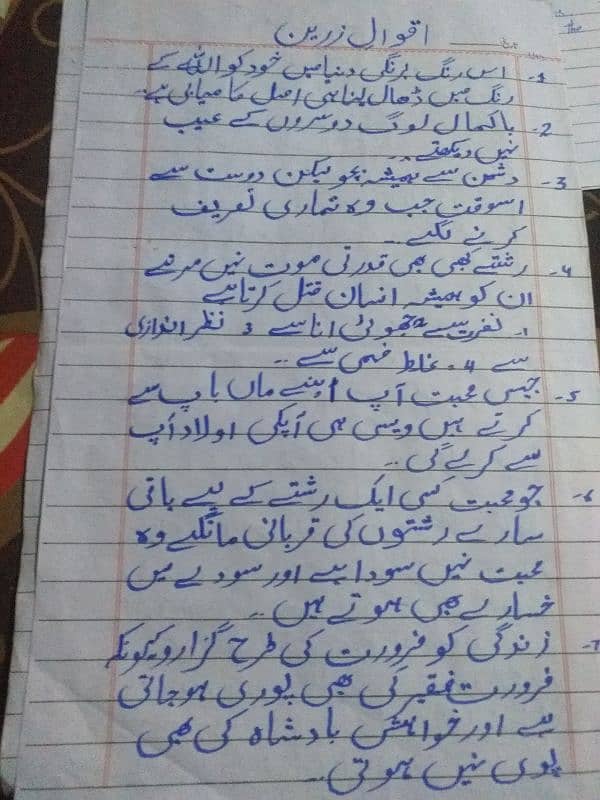 اقوالِ زرین
تاریخ
1- اس رنگ برنگی دنیا میں خود کو اللہ کے
رنگ میں ڈھال لینا ہی اصل کامیابی ہے۔
2- باکمال لوگ دوسروں کے عیب
نہیں دیکھتے۔۔
3- دشمن سے ہمیشہ بچو لیکن دوست سے
اسوقت جب وہ تمہاری تعریف
کرنے لگے۔۔
4- رشتے کبھی بھی قدرتی موت نہیں مرتے
ان کو ہمیشہ انسان قتل کرتا ہے
1۔ نفرت سے 2 جھوٹی انا سے 3 نظر اندازی
سے 4۔ غلط فہمی سے ۔۔
5- جیسی محبت آپ اپنے ماں باپ سے
کرتے ہیں ویسی ہی آپکی اولاد آپ
سے کرے گی ۔۔
6- جو محبت کسی ایک رشتے کے لیے باقی
سارے رشتوں کی قربانی مانگے وہ
محبت نہیں سودا ہے اور سودے میں
خسارے بھی ہوتے ہیں ۔۔
7- زندگی کو ضرورت کی طرح گزارو کیونکہ
ضرورت فقیر کی بھی پوری ہو جاتی
ہے اور خواہش بادشاہ کی بھی
پوری نہیں ہوتی۔۔